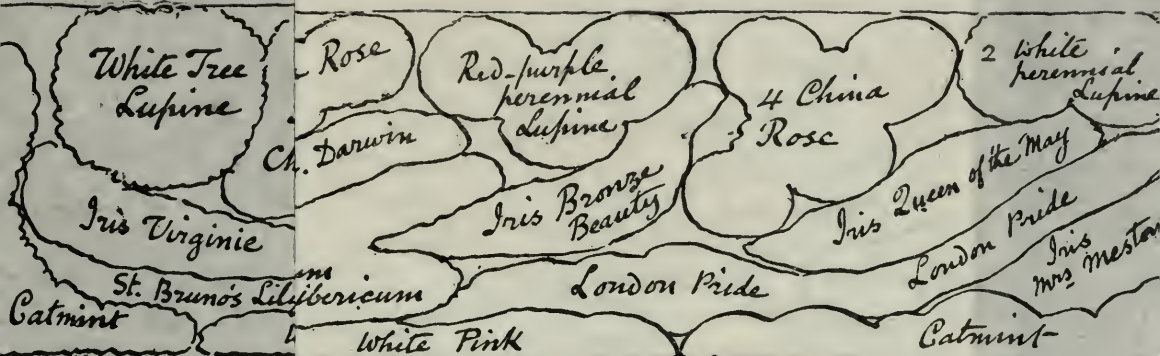 White Tree
Lupine
Rose
Red-purple
perennial
Lupine
4 China
Rose
2 White
perennial
Lupine
Ch. Darwin
Iris Virginie
Iris Bronze
Beauty
Iris Queen of the May
St. Bruno's Lily
ibericum
London Pride
London Pride
Iris
Mrs Neston
Catmint
White Pink
Catmint